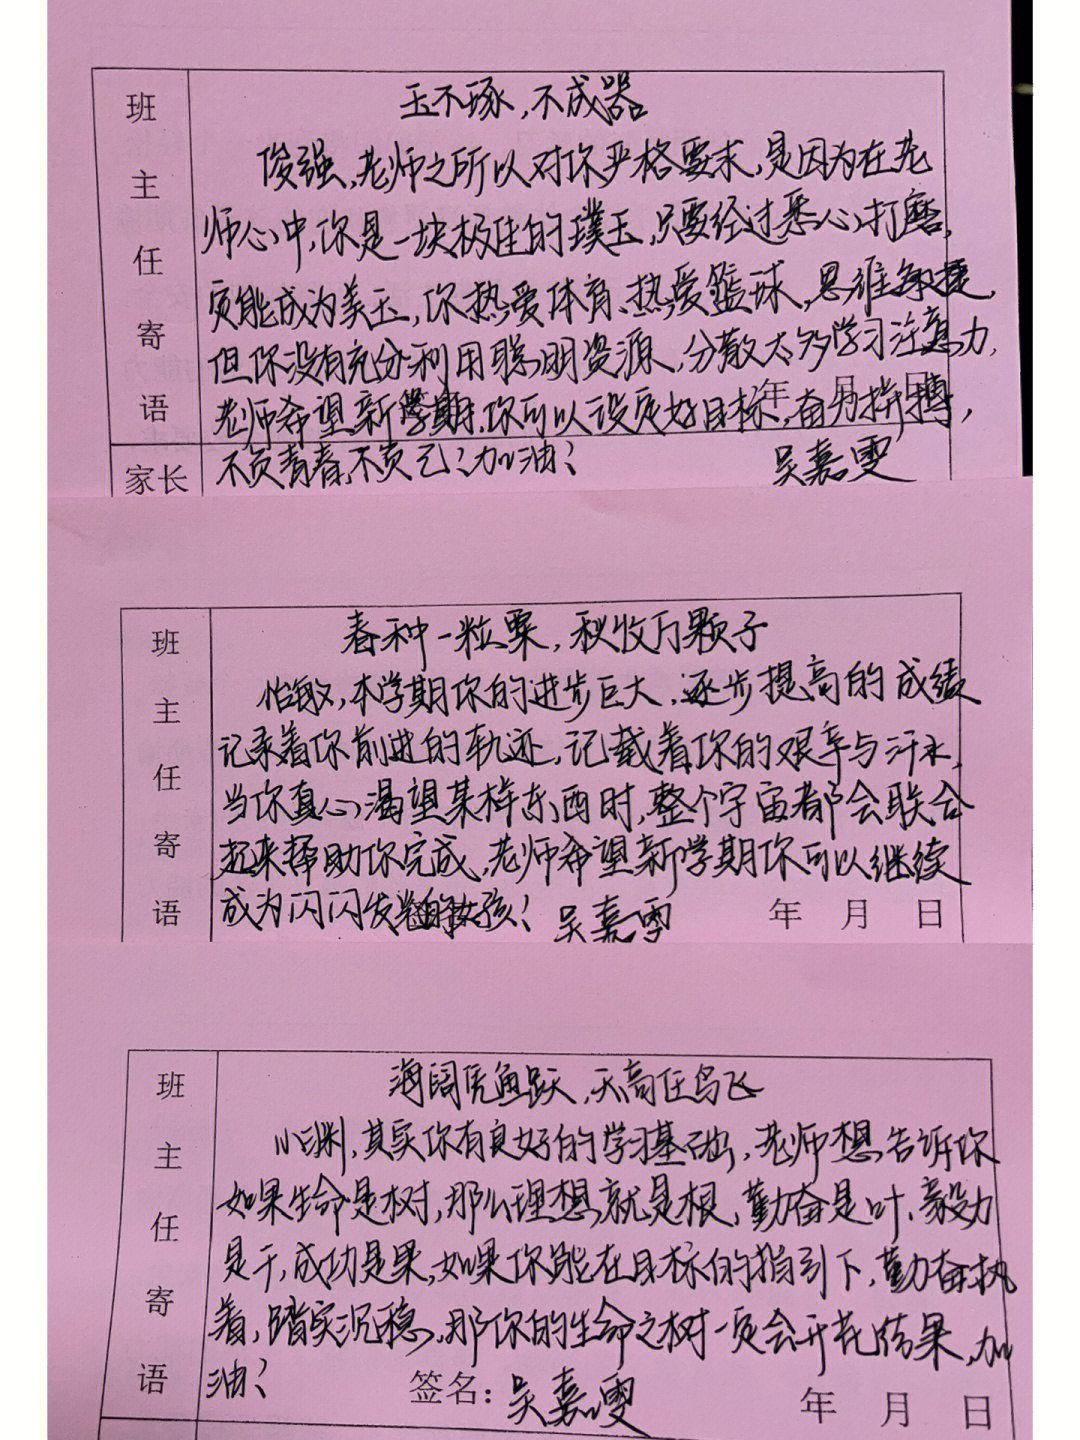 班主任寄语
玉不琢，不成器
俊强，老师之所以对你严格要求，是因为在老
师心中，你是一块极佳的璞玉，只要经过悉心打磨，
定能成为美玉，你热爱体育、热爱篮球，思维敏捷，
但你没有充分利用聪明资源，分散太多学习注意力，
年 月 日
老师希望新学期，你可以设定好目标，奋力拼搏，
家长
不负青春，不负己！加油！ 吴嘉雯
班主任寄语
春种一粒粟，秋收万颗子
怡敏，本学期你的进步巨大，逐步提高的成绩
记录着你前进的轨迹，记载着你的艰辛与汗水，
当你真心渴望某样东西时，整个宇宙都会联合
起来帮助你完成，老师希望新学期你可以继续
成为闪闪发光的女孩！ 吴嘉雯 年 月 日
班主任寄语
海阔凭鱼跃，天高任鸟飞
小渊，其实你有良好的学习基础，老师想告诉你
如果生命是树，那么理想就是根，勤奋是叶、毅力
是干，成功是果，如果你能在目标的指引下，勤奋执
着，踏实沉稳，那你的生命之树一定会开花结果，加
油！ 签名：吴嘉雯 年 月 日